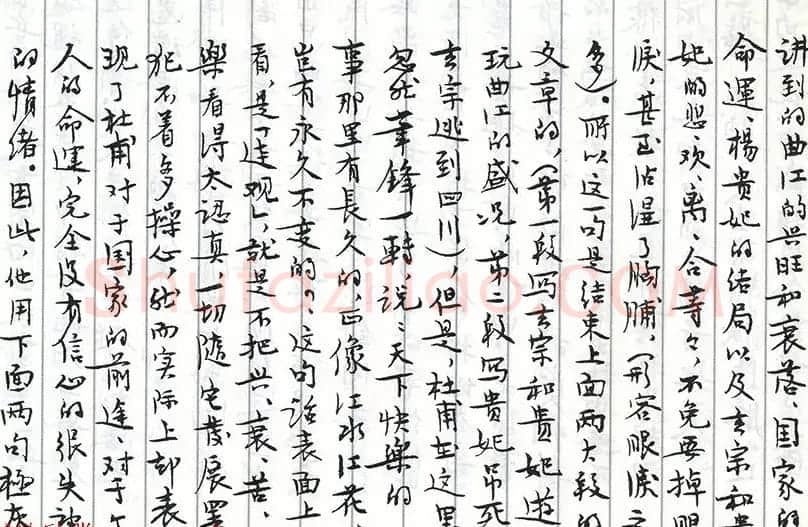 讲到的曲江的兴旺和衰落、国家的
命運、楊貴妃的结局以及玄宗和贵
妃的悲欢、离、合等々，不免要掉眼
淚，甚至沾湿了胸脯，（形容眼淚之
多）。所以这一句是结束上面两大段的
文章的，（第一段写玄宗和贵妃遊
玩曲江的盛况，第二段写贵妃吊死
玄宗逃到四川），但是，杜甫在这里
忽然筆鋒一轉，说：天下快樂的
事那里有長久的，正像江水江花
豈有永久不变的？这句话表面上
看，是「達观」，就是不把兴、衰、苦、
樂看得太認真，一切隨它发展罢
犯不着多操心，然而实际上却表
现了杜甫对于国家的前途、对于个
人的命運，完全没有信心的很失望
的情绪。因此，他用下面两句極
Shufaziliao.COM